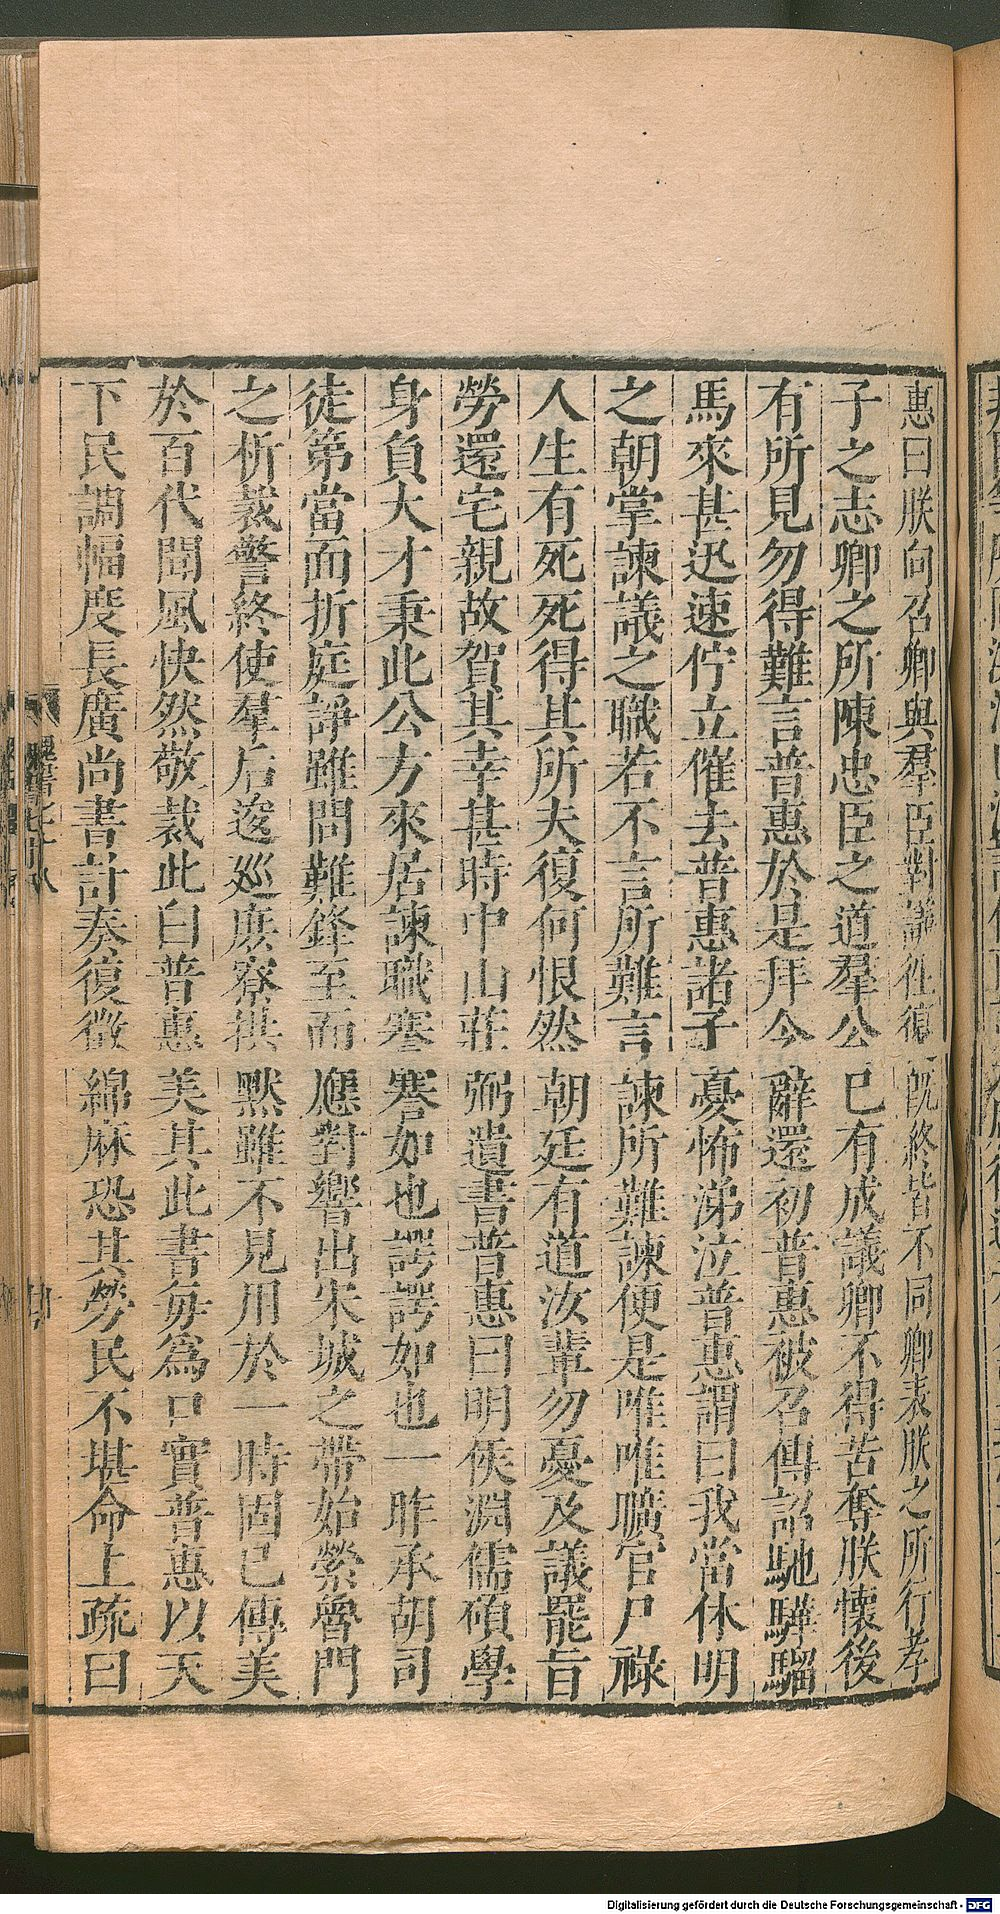 惠曰朕向召卿與羣臣對議往復既終皆不同卿表朕之所行孝
子之志卿之所陳忠臣之道羣公已有成議卿不得苦奪朕懷後
有所見勿得難言普惠於是拜令辭還初普惠被召傳詔馳驊騮
馬來甚迅速佇立催去普惠諸子憂怖涕泣普惠謂曰我當休明
之朝掌諫議之職若不言所難言諫所難諫便是唯唯曠官尸祿
人生有死死得其所夫復何恨然朝廷有道汝輩勿憂及議罷旨
勞還宅親故賀其幸甚時中山莊弼遺書普惠曰明侯淵儒碩學
身負大才秉此公方來居諫職謇謇如也諤諤如也一昨承胡司
徒第當面折庭諍雖問難鋒至而應對響出宋城之帶始縈魯門
之柝裁警終使羣后逡巡庶寮拱默雖不見用於一時固已傳美
於百代聞風快然敬裁此白普惠美其此書每為口實普惠以天
下民調幅度長廣尚書計奏復徵綿麻恐其勞民不堪命上疏曰
Digitalisierung gefördert durch die Deutsche Forschungsgemeinschaft - DFG